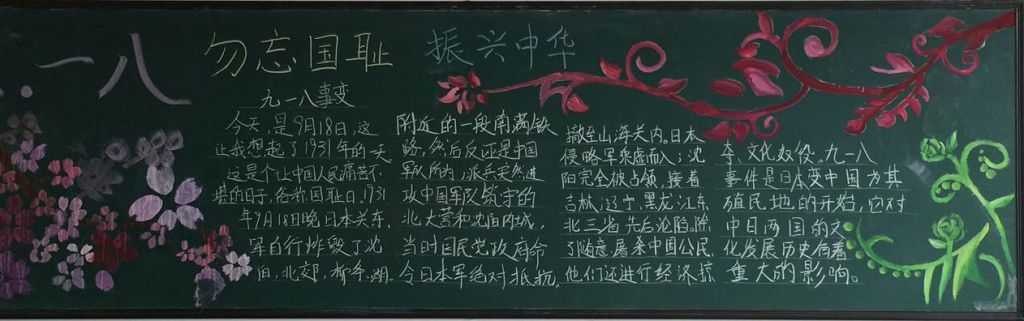 一八
勿忘国耻 振兴中华
九一八事变
今天,是9月18日,这
让我想起了1931年的一天
这是个让中国人民痛苦不
堪的日子,俗称国耻日,1931
年9月18日晚日本关东
军自行炸毁了沈
阳,北郊,柳条,湖
附近的一段南满铁
路,然后反诬是中国
军队所为,派兵突然进
攻中国军队驻守的
北大营和沈阳内城,
当时国民党政府命
令日本军绝对抵抗,
撤至山海关内。日本
侵略军乘虚而入;沈
阳完全被占领,接着
吉林,辽宁,黑龙江东
北三省先后沦陷。除
了随意屠杀中国公民,
他们还进行经济掠
夺,文化奴役。九一八
事件是日本变中国为其
殖民地的开始,它对
中日两国的文
化发展历史有着
重大的影响。